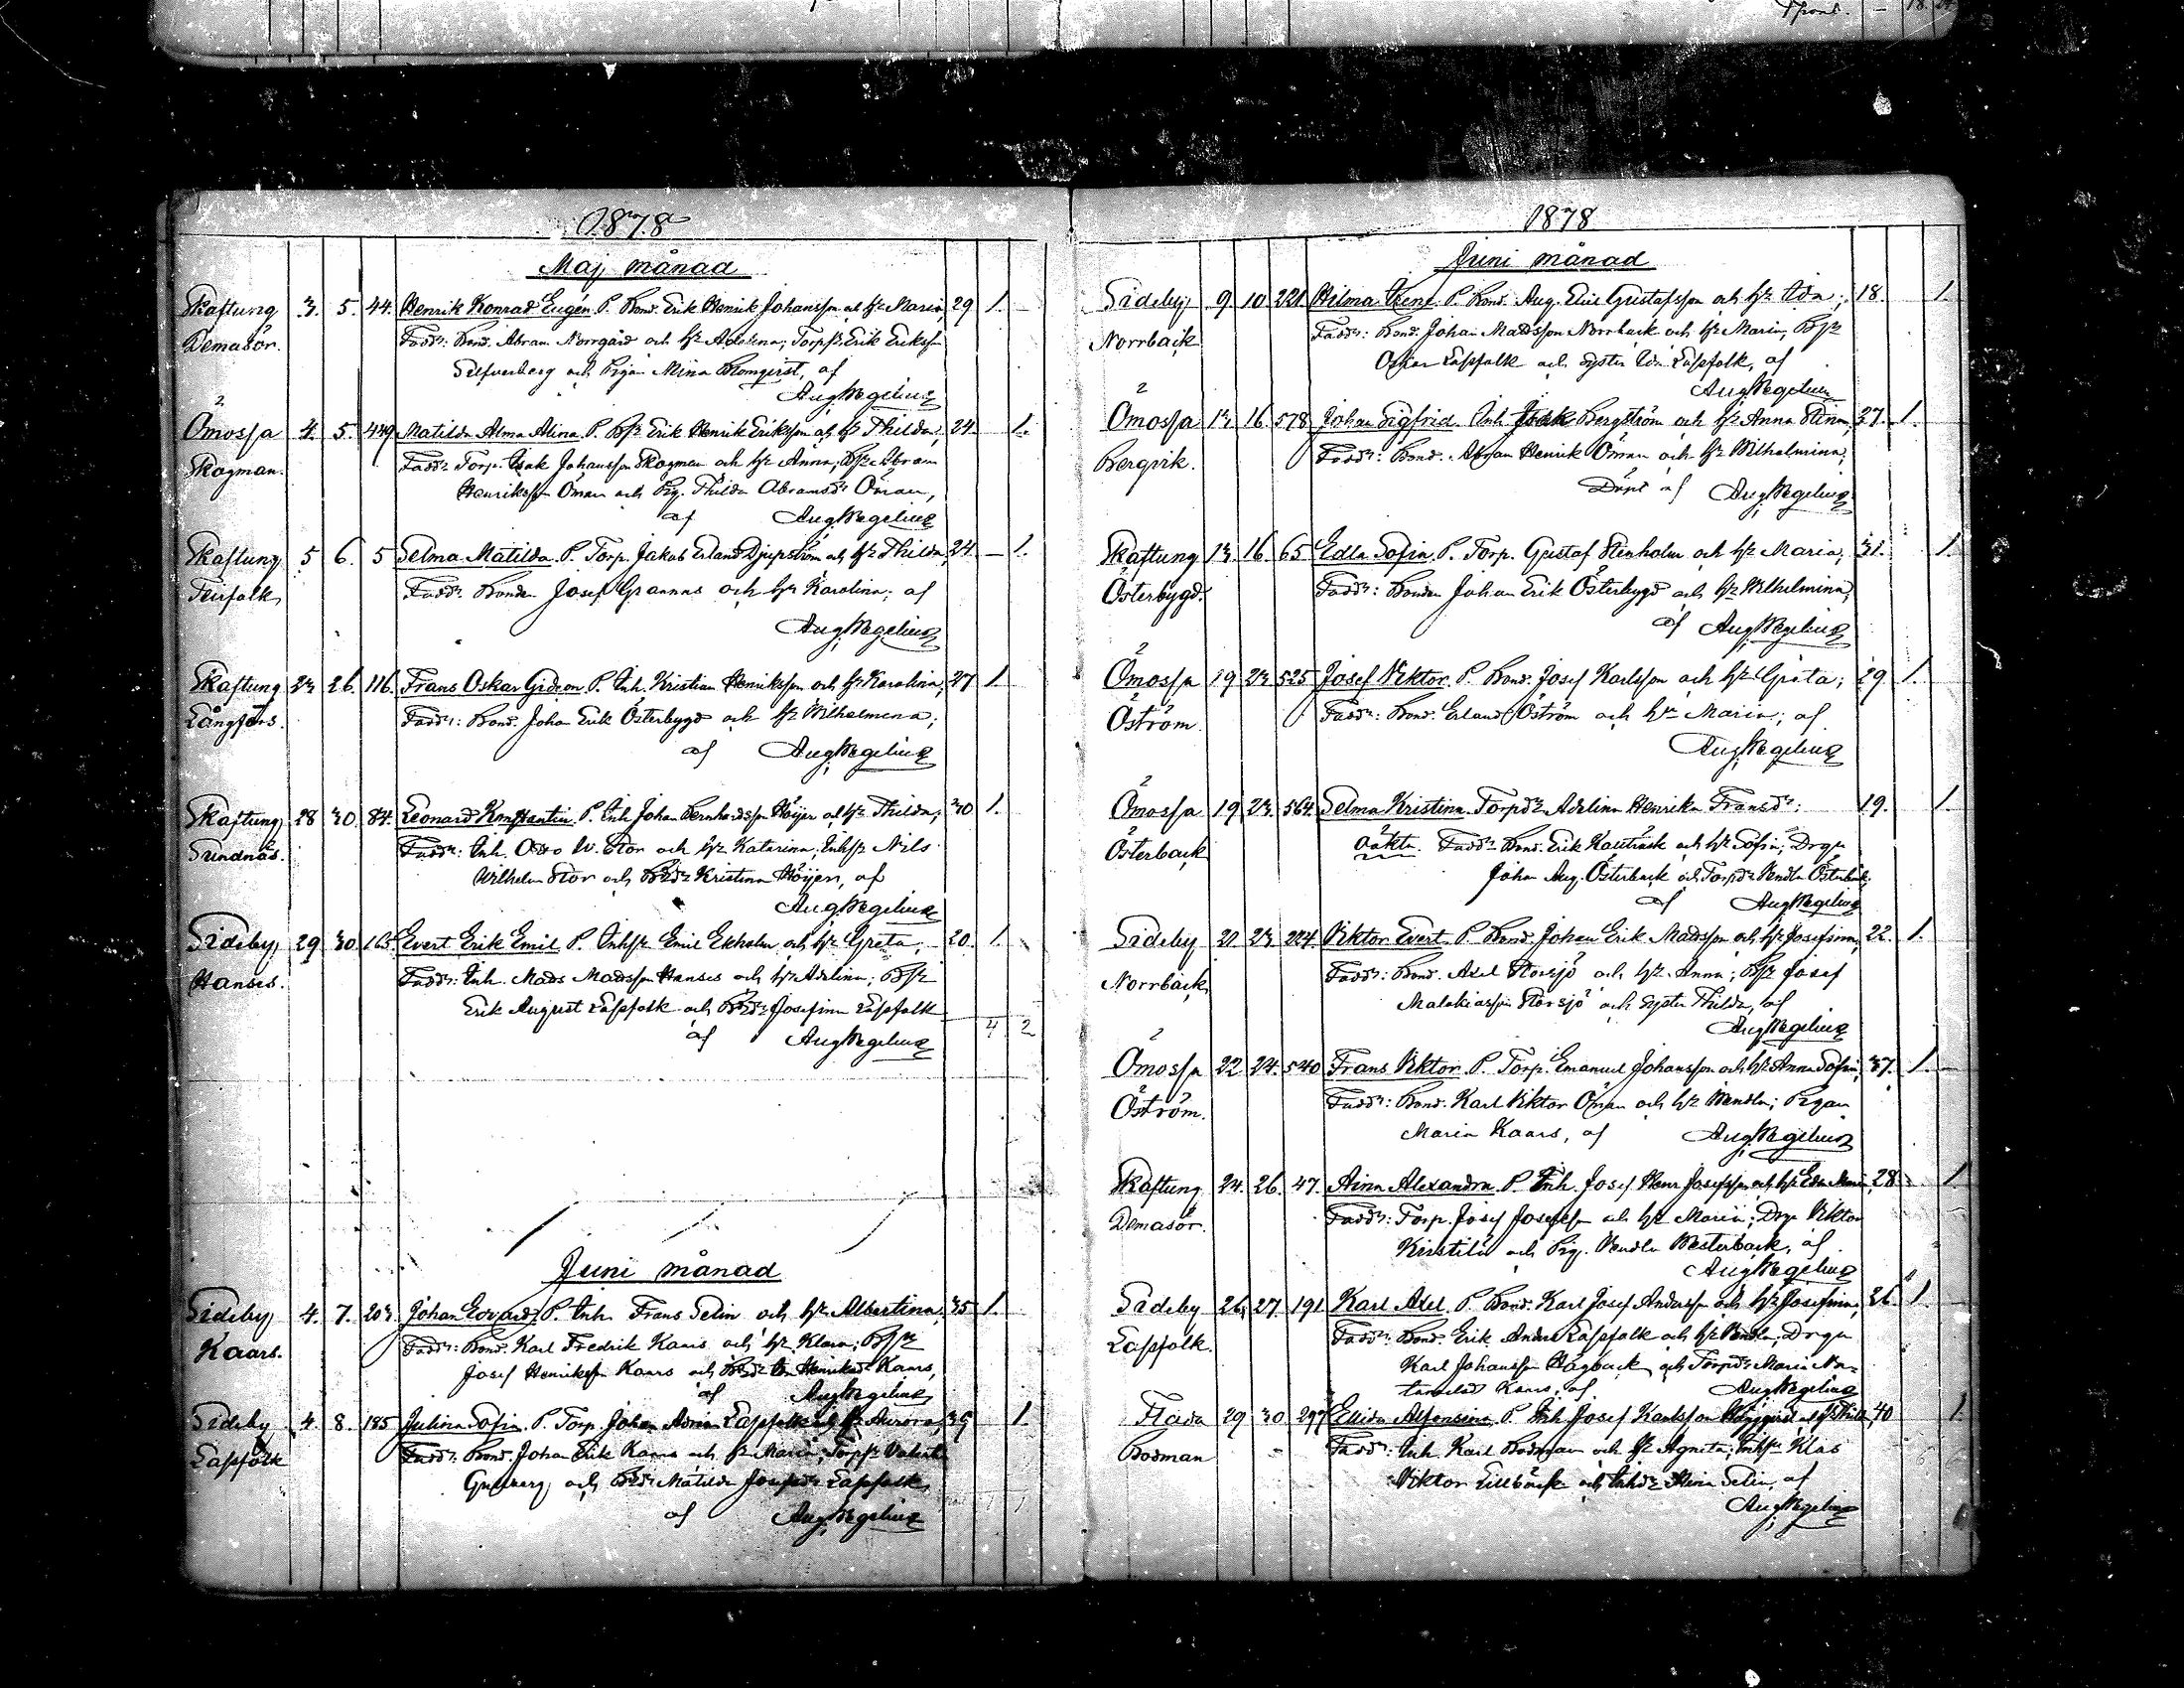 1878
Maj månad
Skaftung 3. 5. 44. Henrik Konrad Eugén P. Bond. Erik Henrik Johansson och h/r Maria, 29 1.
Demasör. Fadd: Bond. Abram Norrgård och h/r Adelina; Torps Erik Eriksson
Silfverberg och Pigan Mina Blomqvist, af
Aug Wegelius
Ömossa 4. 5. 449 Matilda Alma Alina P. Bs Erik Henrik Eriksson och h/r Thilda, 24. 1.
Skogman. Fadd: Torp. Isak Johansson Skogman och h/r Anna; Bs Abram
Henriksson Öman och Pig. Thilda Abramsdr Öman,
af Aug Wegelius
Skaftung 5 6. 5 Selma Matilda P. Torp. Jakob Erland Djupström och h/r Thilda, 24. 1.
Teirfolk Fadd: Bonden Josef Grannas och h/r Karolina; af
Aug Wegelius
Skaftung 23 26. 116. Frans Oskar Gideon P. Inh. Kristian Henriksson och h/r Karolina; 27 1.
Långfors. Fadd: Bond. Johan Erik Österbygd och h/r Wilhelmina;
af Aug Wegelius
Skaftung 28 30. 84. Leonard Konstantin P. Inh Johan Bernhardsson Höijer och h/r Thilda; 30 1.
Sundnäs. Fadd: Inh. Otto W. Stor och h/r Katarina; Inhs Nils
Wilhelm Stor och Bdr Kristina Höijer, af
Aug Wegelius
Sideby 29 30. 165 Evert Erik Emil P. Inhs Emil Ekholm och h/r Greta, 20. 1.
Hanses. Fadd: Inh. Mads Madsson Hanses och h/r Adelina; Bs
Erik August Lassfolk och Bdr Josefina Lassfolk
af Aug Wegelius 4 2
Juni månad
Sideby 4. 7. 203. Johan Edvard P. Inh. Frans Selin och h/r Albertina, 35 1.
Kaars. Fadd: Bond. Karl Fredrik Kaars och h/r Klara; Bs
Josef Henriksson Kaars och Henriksdr Kaars,
af Aug Wegelius
Sideby 4. 8. 185 Julina Sofia P. Torp. Johan Lassfolk och h/r Aurora, 39 1.
Lassfolk Fadd: Bond. Johan Erik Kaars och h/r Maria; Torps
och Bdr Matilda Josefsdr Lassfolk,
af Aug Wegelius
1878
Juni månad
Sideby 9 10 221. Hilma Irene P. Bond. Aug. Elis Gustafsson och h/r Ida; 18. 1.
Norrback Fadd: Bond. Johan Madsson Norrback och h/r Maria, Bs
Oskar Lassfolk och syster Ida Lassfolk, af
Aug Wegelius
Ömossa 13 16 578 Johan Sigfrid. Inh Isak Bergström och h/r Anna Stina, 37. 1.
Bergvik. Fadd: Bond. Abram Henrik Öman och h/r Wilhelmina;
Döpt af Aug Wegelius
Skaftung 13. 16. 65 Edla Sofia P. Torp. Gustaf Stenholm och h/r Maria; 31. 1.
Österbygd. Fadd: Bonden Johan Erik Österbygd och h/r Wilhelmina;
af Aug Wegelius
Ömossa 19 23 525 Josef Viktor P. Bond. Josef Karlsson och h/r Greta; 29 1.
Öström. Fadd: Bond. Erland Öström och h/r Maria; af
Aug Wegelius
Ömossa 19 23. 564. Selma Kristina Torpdr Adelina Henrika Fransdr: 19. 1.
Österback oäkta. Fadd: Bond. Erik och h/r Sofia; Drgn
Johan Aug. Österback och Torpdr Wendla Österback,
af Aug Wegelius
Sideby 21 23 224 Viktor Evert P. Bond. Johan Erik Madsson och h/r Josefina, 22. 1.
Norrback Fadd: Bond. Axel Storsjö och h/r Anna; Bs Josef
Malakiasson Storsjö och syster Thilda, af
Aug Wegelius
Ömossa 22 24. 540 Frans Viktor P. Torp. Emanuel Johansson och h/r Anna Sofia, 37. 1.
Öström. Fadd: Bond. Karl Viktor Öman och h/r Wendla; Pigan
Maria Kaars, af Aug Wegelius
Skaftung 24. 26. 47. Aina Alexandra P. Inh. Josef Henr Josefsson och h/r Edla Maria, 28 1
Demasör. Fadd: Torp. Josef Josefsson och h/r Maria; Drgn Viktor
och Pig. Wendla Westerback, af
Aug Wegelius
Sideby 26. 27. 191 Karl Axel P. Bond. Karl Josef Andersson och h/r Josefina, 26. 1
Lassfolk. Fadd: Bond. Erik Anders Lassfolk och h/r Wendla; Drgn
Karl Johansson Hägback och Torpdr Maria
Kaars, af Aug Wegelius
Flada 29 30 297 Ellida Alfonsina P. Inh Josef Karlsson och h/r Thilda, 40 1
Bodman Fadd: Inh. Karl Bodman och h/r Agneta; Inhs Klas
Viktor Lillbäck och Inhdr Selin, af
Aug Wegelius